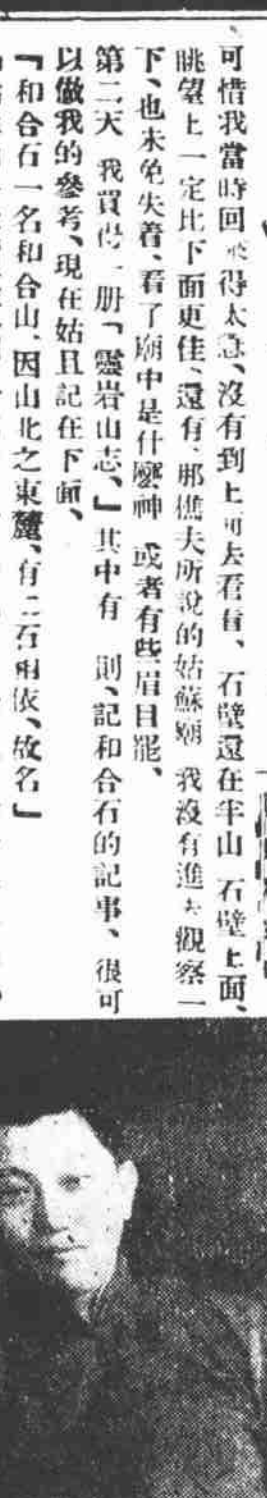 可惜我當時回來得太急、沒有到上面去看看、石壁還在半山 石壁上面、
眺望上一定比下面更佳、還有、那樵夫所說的姑蘇廟 我沒有進去觀察一
下、也未免失着、看了廟中是什麼神 或者有些眉目罷、
第二天 我買得一册「靈岩山志、」其中有 則、記和合石的記事、很可
以做我的參考、現在姑且記在下面、
「和合石一名和合山、因山北之東麓、有二石相依、故名」